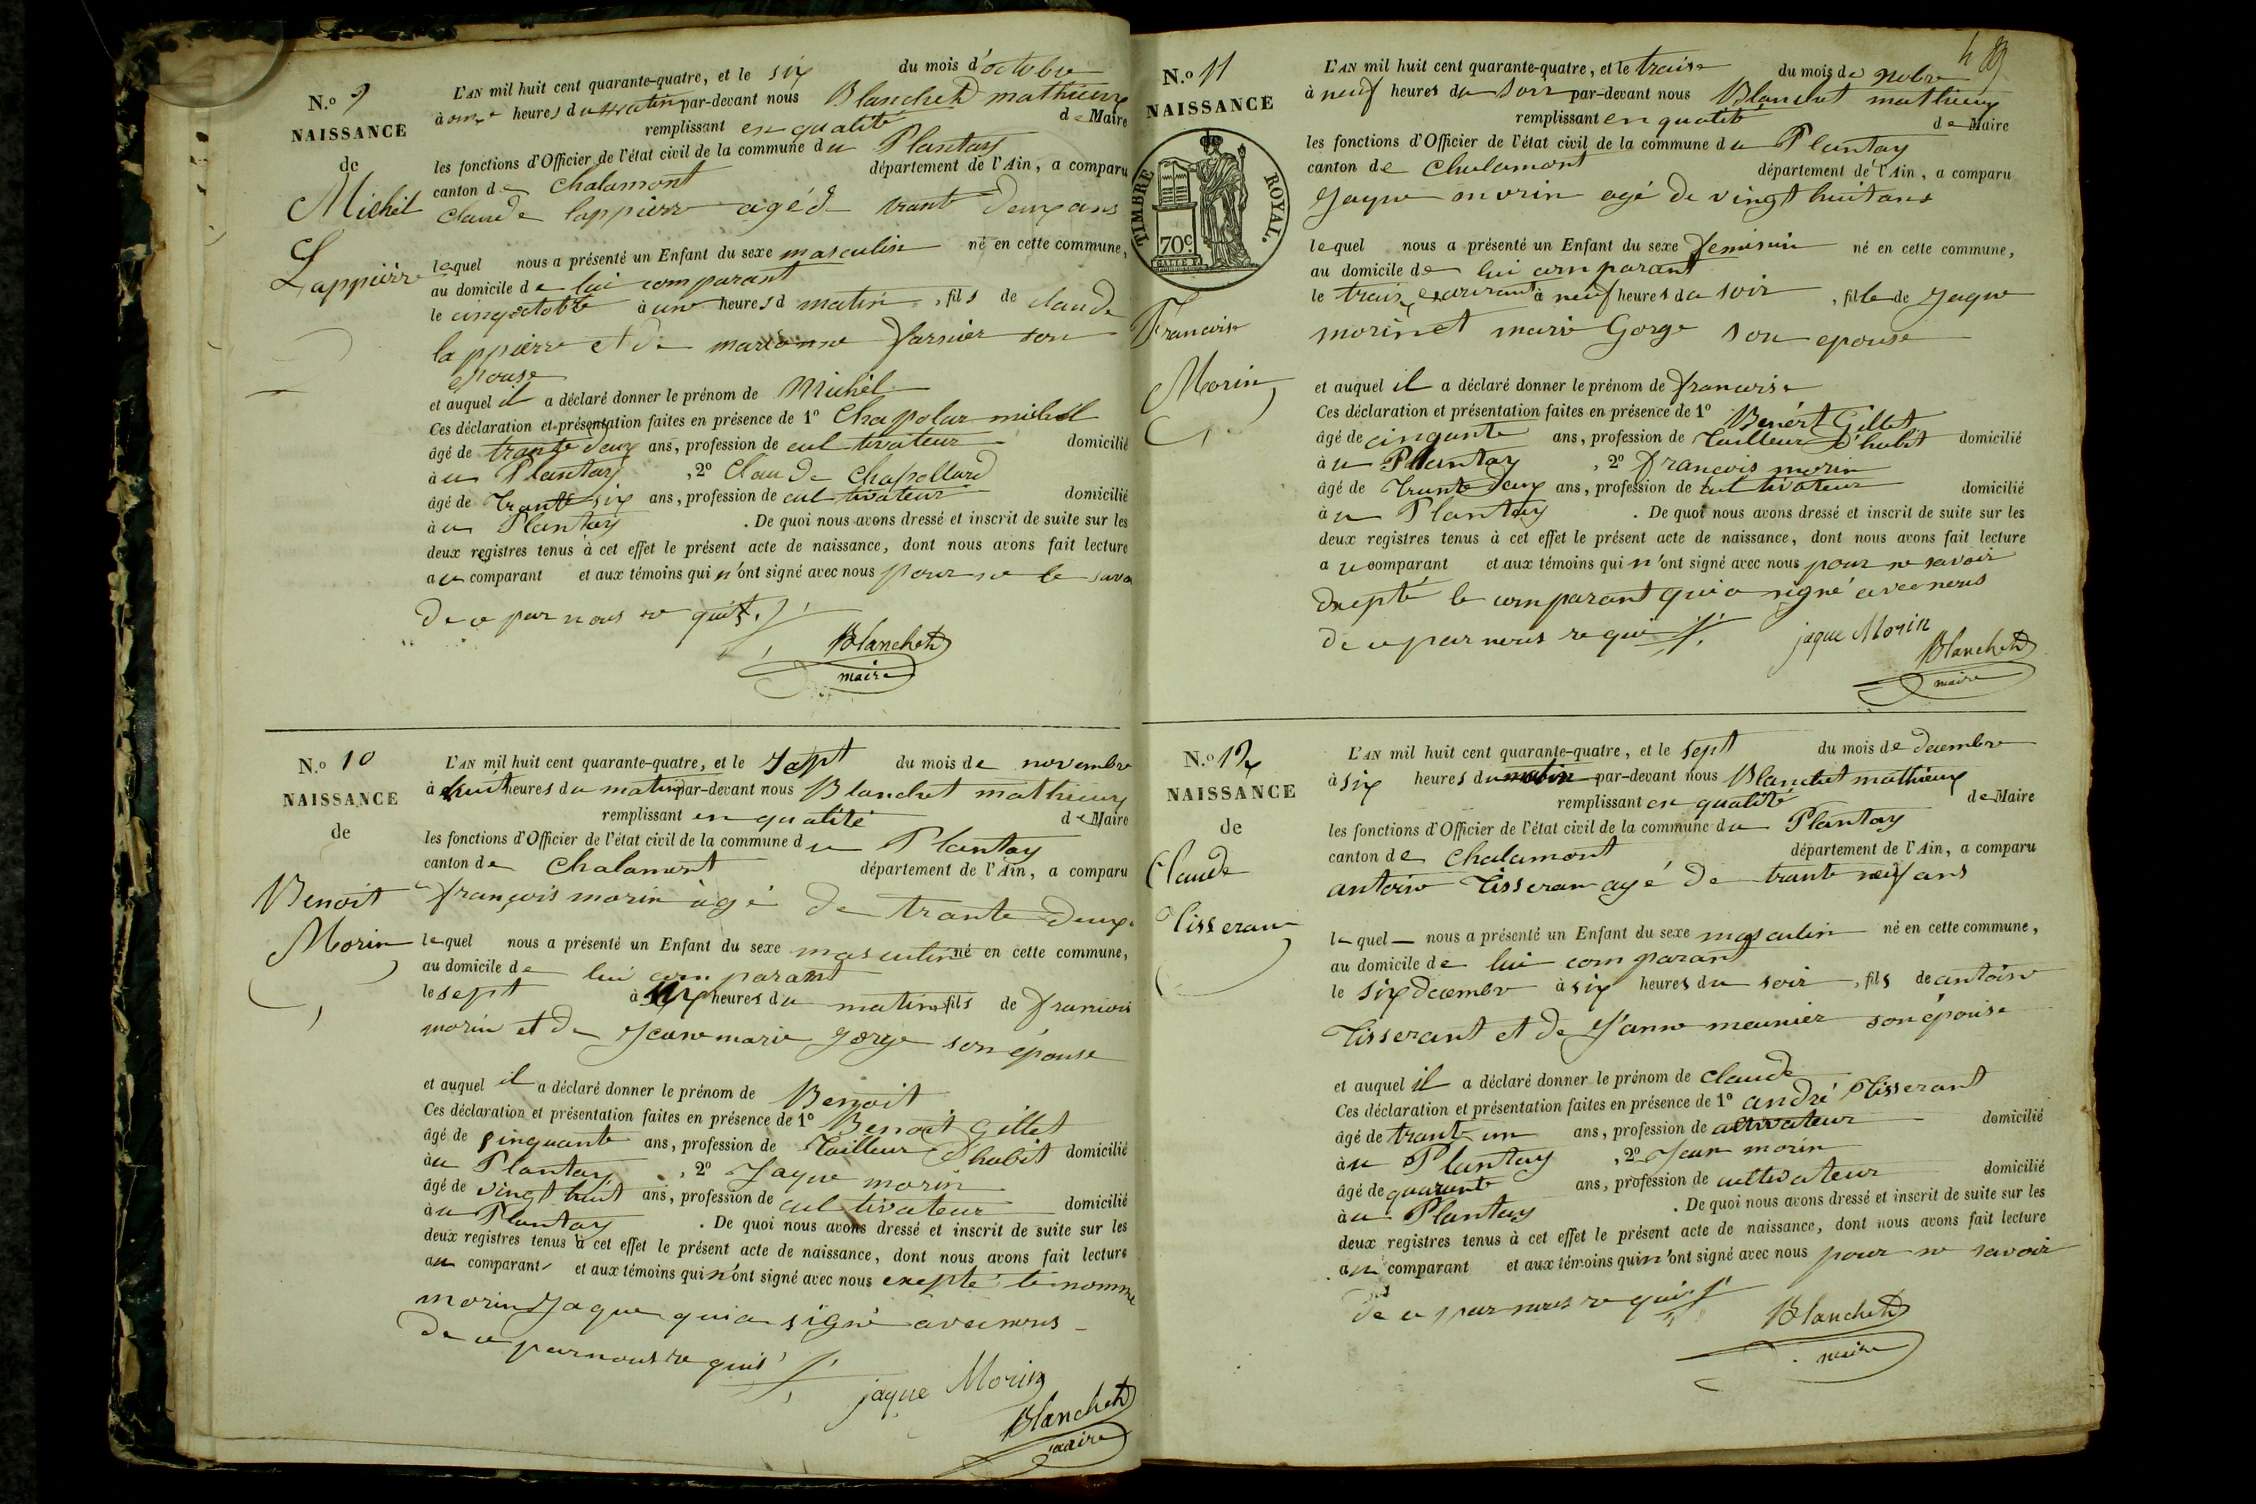 N.o 9
NAISSANCE
de
Michel
Lappierre
L'AN mil huit cent quarante-quatre, et le six du mois d'octobre
à onze heures du matin par-devant nous Blanchet mathieux
remplissant en qualité de Maire
les fonctions d'Officier de l'état civil de la commune du Plantay
canton de Chalamont département de l'Ain, a comparu
claude lappierre agé de trante deux ans
lequel nous a présenté un Enfant du sexe masculin né en cette commune,
au domicile de lui comparant
le cinq octobre à une heures d matin, fils de claude
lappierre et de marionne farnier son
epouse
et auquel il a déclaré donner le prénom de Michel
Ces déclaration et présentation faites en présence de 1o Chapolar michel
âgé de trante deux ans, profession de cultivateur domicilié
à u Plantay, 2o Claude Chapollard
âgé de trante six ans, profession de cultivateur domicilié
à u Plantay. De quoi nous avons dressé et inscrit de suite sur les
deux registres tenus à cet effet le présent acte de naissance, dont nous avons fait lecture
au comparant et aux témoins qui n'ont signé avec nous pour ne le savo
de ce par nous requis
Blanchet
maire
N.o 10
NAISSANCE
de
Benoit
Morin
L'AN mil huit cent quarante-quatre, et le sept du mois de novembre
à huit heures du matin par-devant nous Blanchet mathieux
remplissant en qualité de Maire
les fonctions d'Officier de l'état civil de la commune du Plantay
canton de Chalamont département de l'Ain, a comparu
françois morin àgé de trante deux
lequel nous a présenté un Enfant du sexe masculin né en cette commune,
au domicile de lui comparant
le sept à six heures du matin fils de francois
morin et de Jeanne marie gorge son épouse
et auquel il a déclaré donner le prénom de Benoit
Ces déclaration et présentation faites en présence de 1o Benoit Gillet
âgé de sinquante ans, profession de Tailleur D'habit domicilié
àu Plantay, 2o Jaque morin
âgé de vingt huit ans, profession de cultivateur domicilié
àu Plantay. De quoi nous avons dressé et inscrit de suite sur les
deux registres tenus à cet effet le présent acte de naissance, dont nous avons fait lecture
au comparant et aux témoins qui n'ont signé avec nous exepté le nommé
morin Jaque qui a signé avec nous
de ce par nous requis
jaque Morin
Blanchet
maire
N.o 11
NAISSANCE
TIMBRE ROYAL.
70c
Francoise
Morin
L'AN mil huit cent quarante-quatre, et le traise du mois de nobre
à neuf heures du soir par-devant nous Blanchet mathieux
remplissant en qualité de Maire
les fonctions d'Officier de l'état civil de la commune du Plantay
canton de Chalamont département de l'Ain, a comparu
Jaque morin agé de vingt huit ans
lequel nous a présenté un Enfant du sexe feminin né en cette commune,
au domicile de lui comparant
le traize courant à neuf heures du soir, fille de Jaque
morin et marie Gorge son epouse
et auquel il a déclaré donner le prénom de francoise
Ces déclaration et présentation faites en présence de 1o Benért Gillet
âgé de cinqante ans, profession de Tailleur D'habit domicilié
à u Plantay, 2o françois morin
âgé de trante deux ans, profession de cultivateur domicilié
à u Plantay. De quoi nous avons dressé et inscrit de suite sur les
deux registres tenus à cet effet le présent acte de naissance, dont nous avons fait lecture
a u comparant et aux témoins qui n'ont signé avec nous pour ne savoir
exepté le comparant qui a signé avec nous
de ce par nous requi
jaque Morin
Blanchet
maire
N.o 12
NAISSANCE
de
Claude
Tisseran
L'AN mil huit cent quarante-quatre, et le sept du mois de decembre
à six heures du matin par-devant nous Blanchet mathieux
remplissant en qualité de Maire
les fonctions d'Officier de l'état civil de la commune du Plantay
canton de Chalamont département de l'Ain, a comparu
antoine Tisseran agé de trante neuf ans
lequel nous a présenté un Enfant du sexe masculin né en cette commune,
au domicile de lui comparant
le six decembre à six heures du soir, fils de antoine
Tisserant et de Janne meunier son épouse
et auquel il a déclaré donner le prénom de claude
Ces déclaration et présentation faites en présence de 1o andré Tisserant
âgé de trante un ans, profession de cultivateur domicilié
àu Plantay, 2o Jean morin
âgé de quarante ans, profession de cultivateur domicilié
àu Plantay. De quoi nous avons dressé et inscrit de suite sur les
deux registres tenus à cet effet le présent acte de naissance, dont nous avons fait lecture
au comparant et aux témoins qui n'ont signé avec nous pour ne savoir
de ce par nous requis
Blanchet
maire